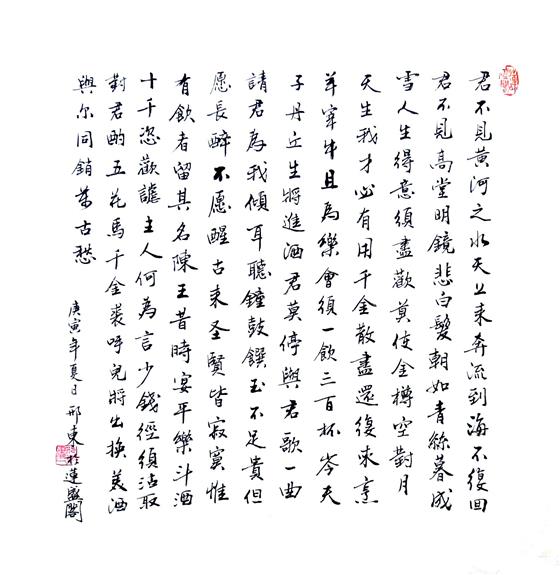 君不見黃河之水天上来奔流到海不復回
君不見高堂明鏡悲白髮朝如青絲暮成
雪人生得意須盡歡莫使金樽空對月
天生我才必有用千金散盡還復来烹
羊宰牛且為樂會須一飲三百杯岑夫
子丹丘生將進酒君莫停與君歌一曲
請君為我傾耳聽鐘鼓饌玉不足貴但
愿長醉不愿醒古来圣賢皆寂寞惟
有飲者留其名陳王昔時宴平樂斗酒
十千恣歡謔主人何為言少錢徑須沽取
對君酌五花馬千金裘呼兒將出換美酒
與尔同銷萬古愁
庚寅年夏日邢東於蓮盛閣